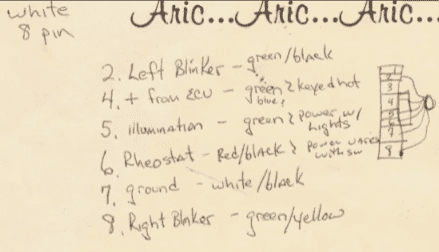 white
8 pin
Aric...Aric...Aric...
2. Left Blinker - green/black
4. + from ECU - green } keyed hot
blue?
5. illumination - green } power w/
Lights
6. Rheostat - Red/black } power varies
with sw
7. ground - white/black
8. Right Blnker - green/yellow
2
3
4
5
6
7
8